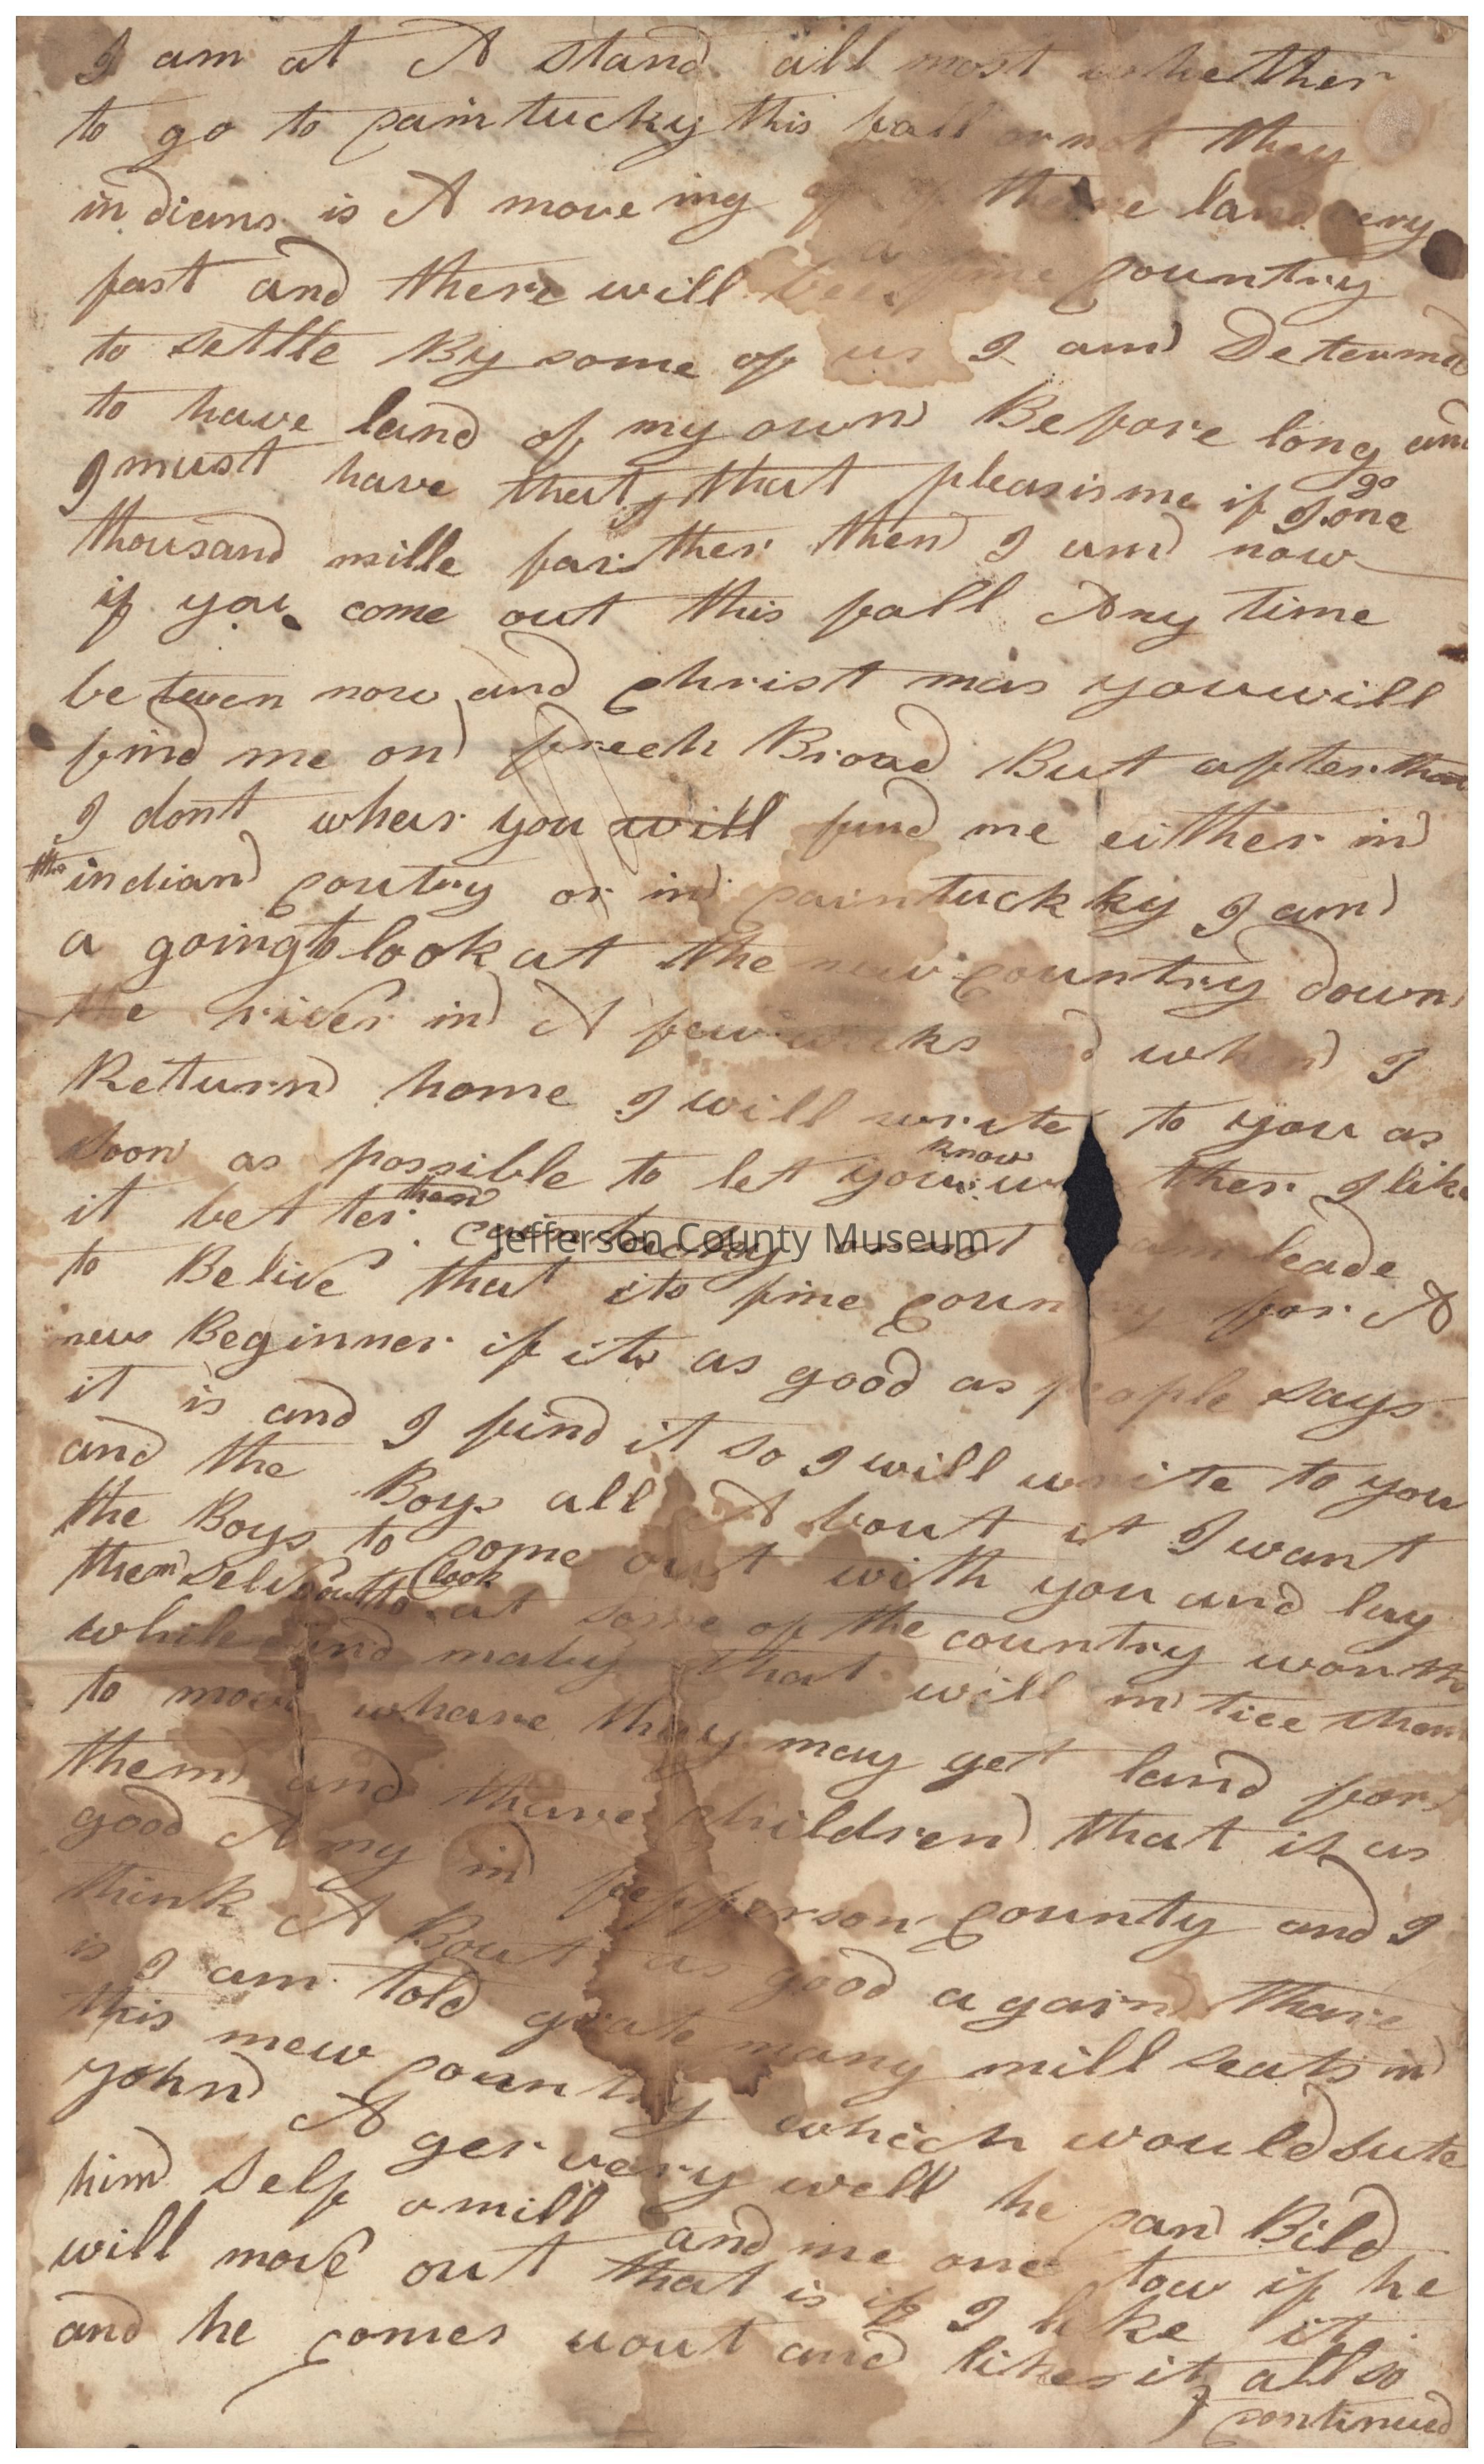 I am at A stand all most whether
to go to caintucky this fall or not they
indians is A move ing of of there land very
fast and there will bee a fine country
to settle By some of us I am Determd
to have land of my own Before long and
I must have that, that pleasis me if I go one
thousand mille farther then I am now
if you come out this fall Any time
be twen now and christ mas you will
find me on frech Broad But after that
I dont whear you will find me either in
the indian coutry or in caintuckky I am
a going to look at the new country down
the river in A few weeks when I
Return home I will write to you as
soon as possible to let you know ther I like
it better then caintucky or not leade
to Belive that its fine country for A
new Beginner if its as good as people says
it is and I find it so I will write to you
and the Boys all A bout it I want
the Boys to come out with you and lay
them selvs out to look at some of the country worth
while and maby that will in tice them
to move whare they may get land for
them and thare children that is as
good Any in jefferson county and I
think A Bout as good again thare
is I am told grate many mill seats in
this new country which would sute
john A ger very well he can Bild
him self a mill and me one tow if he
will move out that is if I like it
and he comes uout and likes it all so
continued
Jefferson County Museum